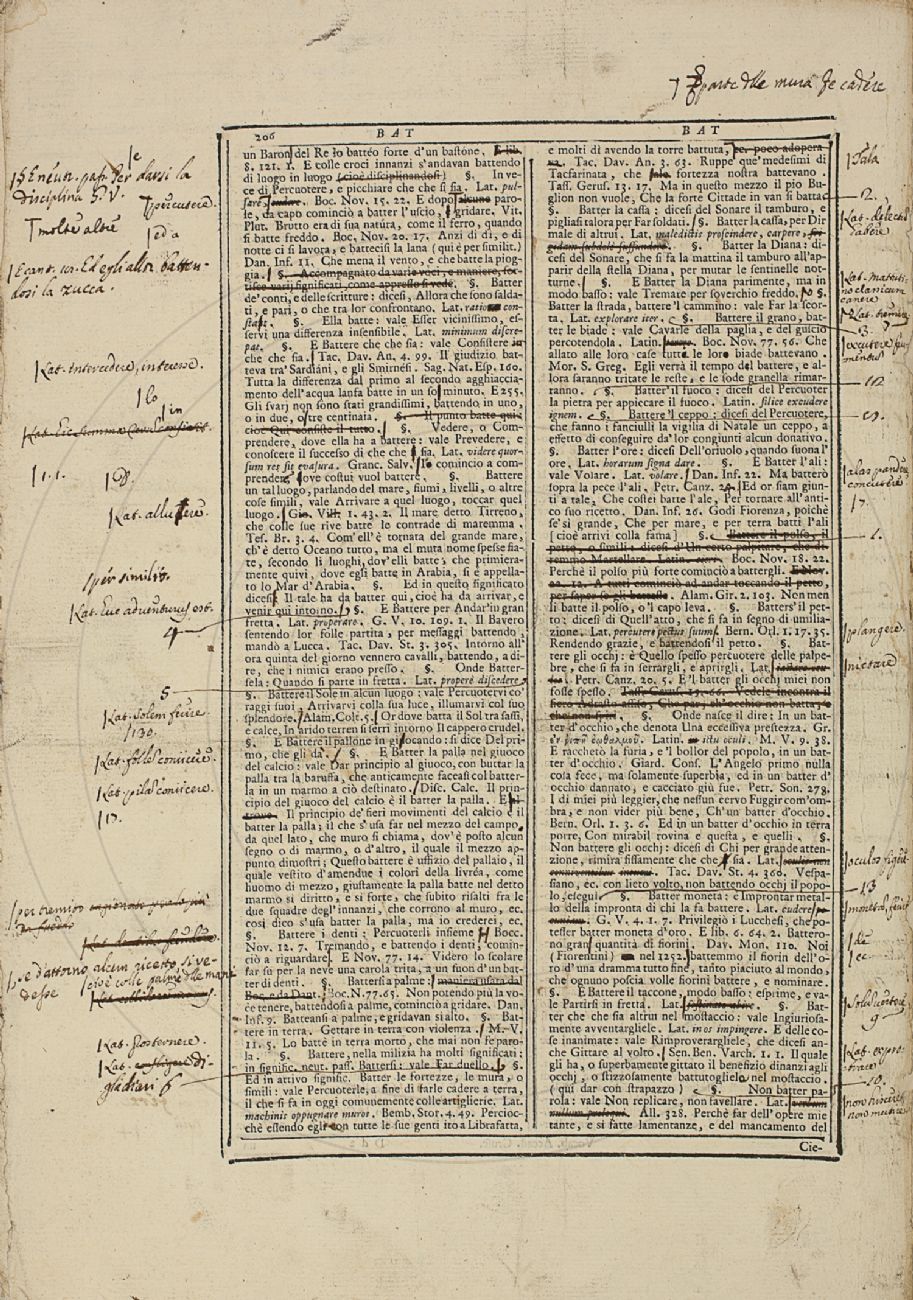 parte delle mura fe cadere
206 BAT BAT
un Baron del Re lo battéo forte d'un bastone. E lib.
§. 121. 1. E colle croci innanzi s'andavan battendo
di luogo in luogo (cioè disciplinandosi) §. In ve-
ce di Percuotere, e picchiare che che si sia. Lat. pul-
sare, tundere. Boc. Nov. 15. 22. E dopo alcune paro-
le, da capo cominciò a batter l'uscio, gridare. Vit.
Plut. Brutto era di sua natura, come il ferro, quando
si batte freddo. Boc. Nov. 20. 17. Anzi di dì, e di
notte ci si lavora, e batteci si la lana (qui è per similit.)
Dan. Inf. 11. Che mena il vento, e che batte la piog-
gia. §. Accompagnato da varie voci, e maniere, sor-
tisce varj significati, come appresso si vede. §. Batter
de' conti, e delle scritture: dicesi, Allora che sono salda-
ti, e pari, o che tra lor confrontano. Lat. ratio con-
stat. §. Ella batte: vale Esser vicinissimo, es-
servi una differenza insensibile. Lat. minimum discre-
pat. §. E Battere che che sia: vale Consistere in
che che sia. Tac. Dav. An. 4. 99. Il giudizio bat-
teva tra' Sardiani, e gli Smirnési. Sag. Nat. Esp. 160.
Tutta la differenza dal primo al secondo agghiaccia-
mento dell'acqua lanfa batte in un sol minuto. E 255.
Gli svarj non sono stati grandissimi, battendo in uno,
o in due, oltre centinaia. §. Il punto batte qui:
cioè Qui consiste il tutto. §. Vedere, o Com-
prendere, dove ella ha a battere: vale Prevedere, e
conoscere il successo di che che si sia. Lat. videre quor-
sum res sit evasura. Granc. Salv. Io comincio a com-
prendere, dove costui vuol battere. §. Battere
un tal luogo, parlando del mare, fiumi, livelli, o altre
cose simili, vale Arrivare a quel luogo, toccar quel
luogo. Gio. Vill. 1. 43. 2. Il mare detto Tirreno,
che colle sue rive batte le contrade di maremma.
Tes. Br. 3. 4. Com'ell'è tornata del grande mare,
ch'è detto Oceano tutto, ma el muta nome spesse fia-
te, secondo li luoghi, dov'elli batte; che primiera-
mente quivi, dove egli batte in Arabia, si è appella-
to lo Mar d'Arabia. §. Ed in questo significato
dicesi Il tale ha da batter qui, cioè ha da arrivar, e
venir qui intorno. §. E Battere per Andar'in gran
fretta. Lat. properare. G. V. 10. 109. 1. Il Bavero
sentendo lor folle partita, per messaggi battendo,
mandò a Lucca. Tac. Dav. St. 3. 305. Intorno all'
ora quinta del giorno vennero cavalli, battendo, a di-
re, che i nimici erano presso. §. Onde Batter-
sela: Quando si parte in fretta. Lat. properè discedere
§. Battere il Sole in alcun luogo: vale Percuotervi co'
raggi suoi, Arrivarvi colla sua luce, illumarvi col suo
splendore. Alam. Colt. 5. Or dove batta il Sol tra sassi,
e calce, In arido terren si serri intorno Il cappero crudel.
§. E Battere il pallone in giuocando: si dice Del pri-
mo, che gli dà. §. E Batter la palla nel giuoco
del calcio: vale Dar principio al giuoco, con buttar la
palla tra la baruffa, che anticamente faceasi col batter-
la in un marmo a ciò destinato. Disc. Calc. Il prin-
cipio del giuoco del calcio è il batter la palla. E al-
trove. Il principio de' fieri movimenti del calcio è il
batter la palla; il che s'usa far nel mezzo del campo,
da quel lato, che muro si chiama, dov'è posto alcun
segno o di marmo, o d'altro, il quale il mezzo ap-
punto dimostri; Questo battere è ufizio del pallaio, il
quale vestito d'amendue i colori della livréa, come
huomo di mezzo, giustamente la palla batte nel detto
marmo sì diritto, e sì forte, che subito risalti fra le
due squadre degl'innanzi, che corrono al muro, ec.
così dico s'usa batter la palla, ma io crederei, ec.
§. Battere i denti: Percuoterli insieme Bocc.
Nov. 12. 7. Tremando, e battendo i denti, comin-
ciò a riguardare. E Nov. 77. 14. Videro lo scolare
far su per la neve una carola trita, a un suon d'un bat-
ter di denti. §. Battersi a palme: maniera usata dal
Boc. e da Dant. Boc. N. 77. 65. Non potendo più la vo-
ce tenere, battendosi a palme, cominciò a gridare. Dan.
Inf. 9. Batteansi a palme, e gridavan sì alto. §. Bat-
tere in terra. Gettare in terra con violenza. M. V.
11. 5. Lo battè in terra morto, che mai non fe paro-
la. §. Battere, nella milizia ha molti significati:
in signific. neut. pass. Battersi: vale Far duello. §.
Ed in attivo signific. Batter le fortezze, le mura, o
simili: vale Percuoterle, a fine di farle cadere a terra,
il che si fa in oggi comunemente colle artiglierie. Lat.
machinis oppugnare muros. Bemb. Stor. 4. 49. Percioc-
chè essendo egli con tutte le sue genti ito a Librafatta,
e molti dì avendo la torre battuta, ec. poco adopera-
va. Tac. Dav. An. 3. 63. Ruppe que' medesimi di
Tacfarinata, che fortezza nostra battevano.
Tass. Gerus. 13. 17. Ma in questo mezzo il pio Bu-
glion non vuole, Che la forte Cittade in van si batta.
§. Batter la cassa: dicesi del Sonare il tamburo, e
pigliasi talora per Far soldati. §. Batter la cassa, per Dir
male di altrui. Lat. maledictis proscindere, carpere,
§. Batter la Diana: di-
cesi del Sonare, che si fa la mattina il tamburo all'ap-
parir della stella Diana, per mutar le sentinelle not-
turne. §. E Batter la Diana parimente, ma in
modo basso: vale Tremare per soverchio freddo. §.
Batter la strada, battere 'l cammino: vale Far la scor-
ta, Lat. explorare iter. §. Battere il grano, bat-
ter le biade: vale Cavarle della paglia, e del guscio
percotendola. Latin. Boc. Nov. 77. 56. Che
allato alle loro case tutte le loro biade battevano.
Mor. S. Greg. Egli verrà il tempo del battere, e al-
lora saranno tritate le reste, e le sode granella rimar-
ranno. §. Batter'il fuoco: dicesi del Percuoter
la pietra per appiccare il fuoco. Latin. silice excudere
ignem. §. Battere 'l ceppo: dicesi del Percuotere,
che fanno i fanciulli la vigilia di Natale un ceppo, a
effetto di conseguire da' lor congiunti alcun donativo.
§. Batter l'ore: dicesi Dell'oriuolo, quando suona l'
ore, Lat. horarum signa dare. §. E Batter l'ali:
vale Volare. Lat. volare. Dan. Inf. 22. Ma batterò
sopra la pece l'ali, Petr. Canz. 24. Ed or siam giun-
ti a tale, Che costei batte l'ale, Per tornare all'anti-
co suo ricetto. Dan. Inf. 26. Godi Fiorenza, poichè
se' sì grande, Che per mare, e per terra batti l'ali
[cioè arrivi colla fama] §. Battere il polso, il
petto, o simili: dicesi d'Un certo palpitare, che di-
remmo Martellare. Latin. Boc. Nov. 18. 22.
Perchè il polso più forte cominciò a battergli. E Nov.
22. 12. A tutti cominciò ad andar toccando il petto,
per saper se gli battesse. Alam. Gir. 2. 103. Non men
li batte il polso, o 'l capo leva. §. Batters' il pet-
to: dicesi di Quell'atto, che si fa in segno di umilia-
zione. Lat. percutere pectus suum. Bern. Orl. 1. 17. 35.
Rendendo grazie, e battendosi il petto. §. Bat-
tere gli occhj: è Quello spesso percuotere delle palpe-
bre, che si fa in serrargli, e aprirgli. Lat.
Petr. Canz. 20. 5. E 'l batter gli occhj miei non
fosse spesso. Tass. Gerus. 13. 66. Vedele incontra il
fiero Adrasto assiso, Che par, ch'occhio non batta, e
che non spiri. §. Onde nasce il dire: In un bat-
ter d'occhio, che denota Una eccessiva prestezza. Gr.
Latin. in ictu oculi. M. V. 9. 38.
E racchetò la furia, e 'l bollor del popolo, in un bat-
ter d'occhio. Giard. Cons. L'Angelo primo nulla
cosa fece, ma solamente superbìa, ed in un batter d'
occhio dannato, e cacciato giù fue. Petr. Son. 278.
I dì miei più leggier, che nessun cervo Fuggir com'om-
bra, e non vider più bene, Ch'un batter d'occhio.
Bern. Orl. 1. 3. 6. Ed in un batter d'occhio in terra
porre, Con mirabil rovina e questa, e quelli. §.
Non battere gli occhj: dicesi di Chi per grande atten-
zione, rimira fissamente che che sia. Lat.
Tac. Dav. St. 4. 360. Vespa-
siano, ec. con lieto volto, non battendo occhj il popo-
lo, eseguì §. Batter moneta: è Improntar metal-
lo della impronta di chi la fa battere. Lat. cudere
G. V. 4. 1. 7. Privilegiò i Lucchesi, che po-
tesser batter moneta d'oro. E lib. 6. 64. 2. Battero-
no gran quantità di fiorini. Dav. Mon. 110. Noi
(Fiorentini) nel 1252. battemmo il fiorin dell'o-
ro d'una dramma tutto fine, tanto piaciuto al mondo,
che ognuno poscia volle fiorini battere, e nominare.
§. E Battere il taccone, modo basso: esprime, e va-
le Partirsi in fretta. Lat. §. Bat-
ter che che sia altrui nel mostaccio: vale Ingiuriosa-
mente avventargliele. Lat. in os impingere. E delle co-
se inanimate: vale Rimproverargliele, che dicesi an-
che Gittare al volto. Sen. Ben. Varch. 1. 1. Il quale
gli ha, o superbamente gittato il benefizio dinanzi agli
occhj, o stizzosamente battutogliele nel mostaccio.
(qui dar con istrapazzo) §. Non batter pa-
rola: vale Non replicare, non favellare. Lat.
All. 328. Perchè far dell'opere mie
tante, e sì fatte lamentanze, e del mancamento del
Cie-
percuotere.
molte altre
ed a
dosi la zucca.
Lat. intercedere, interesse.
lo
in
1. 1.
Lat. alluere.
per similit.
4
5
Lat. Solem ferire
130.
Lat. follem conjicere
Lat. pilam conjicere.
Lat. prosternere.
6
2.
Lat. matuti-
canere
3.
plangere.
nictare
13
9
10.